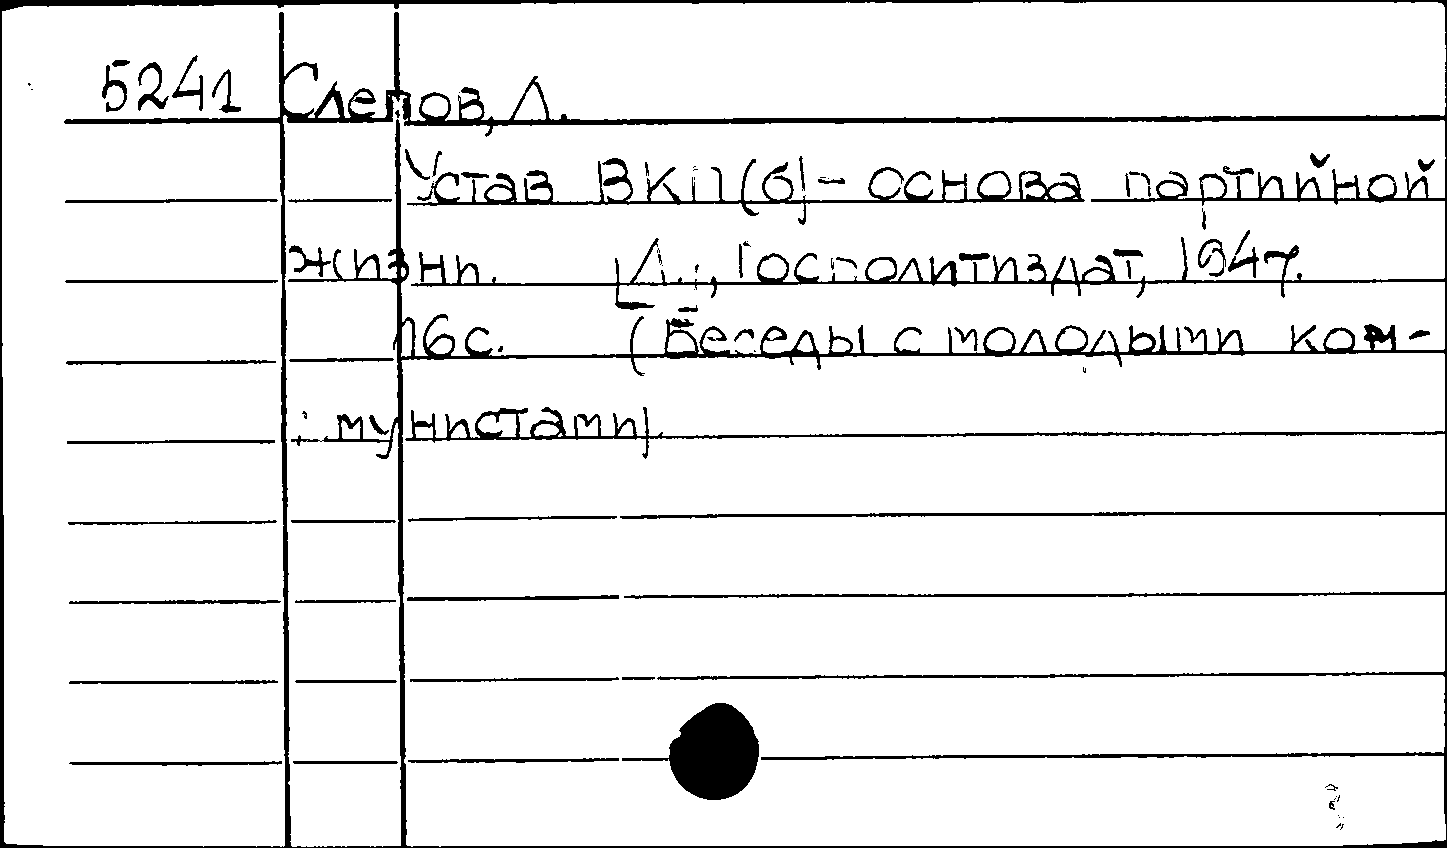 5241 Слепов, Л.
Устав ВКП(б) - основа партийной
жизни. [Л.], Госполитиздат, 1947.
16 с. (Беседы с молодыми ком-
мунистами).